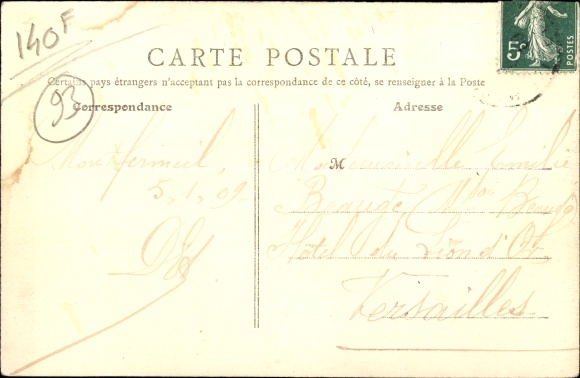 140F
93
CARTE POSTALE
Certains pays étrangers n'acceptant pas la correspondance de ce côté, se renseigner à la Poste
Correspondance
Adresse
5c
POSTES
Montfermeil,
5.1.09.
M
Mademoiselle Emilie
Beaugé
Hôtel du Lion d'Or
Versailles